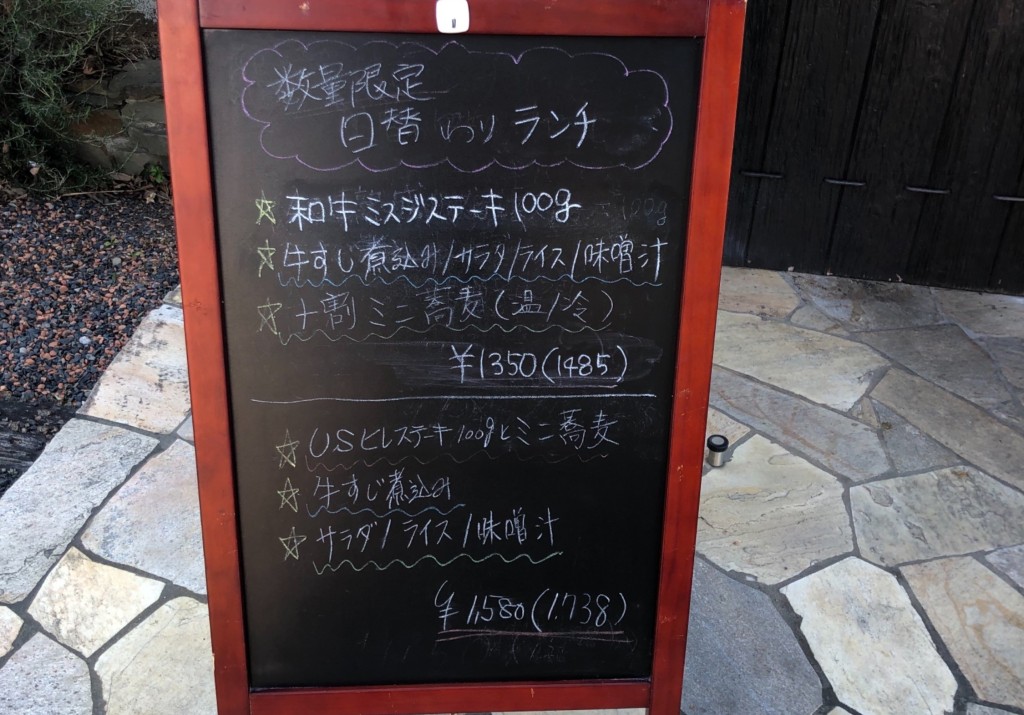 数量限定
日替わりランチ
☆和牛ミスジステーキ100g
☆牛すじ煮込み/サラダ/ライス/味噌汁
☆十割ミニ蕎麦(温/冷)
¥1350(1485)
☆USヒレステーキ100gとミニ蕎麦
☆牛すじ煮込み
☆サラダ/ライス/味噌汁
¥1,580(1.738)